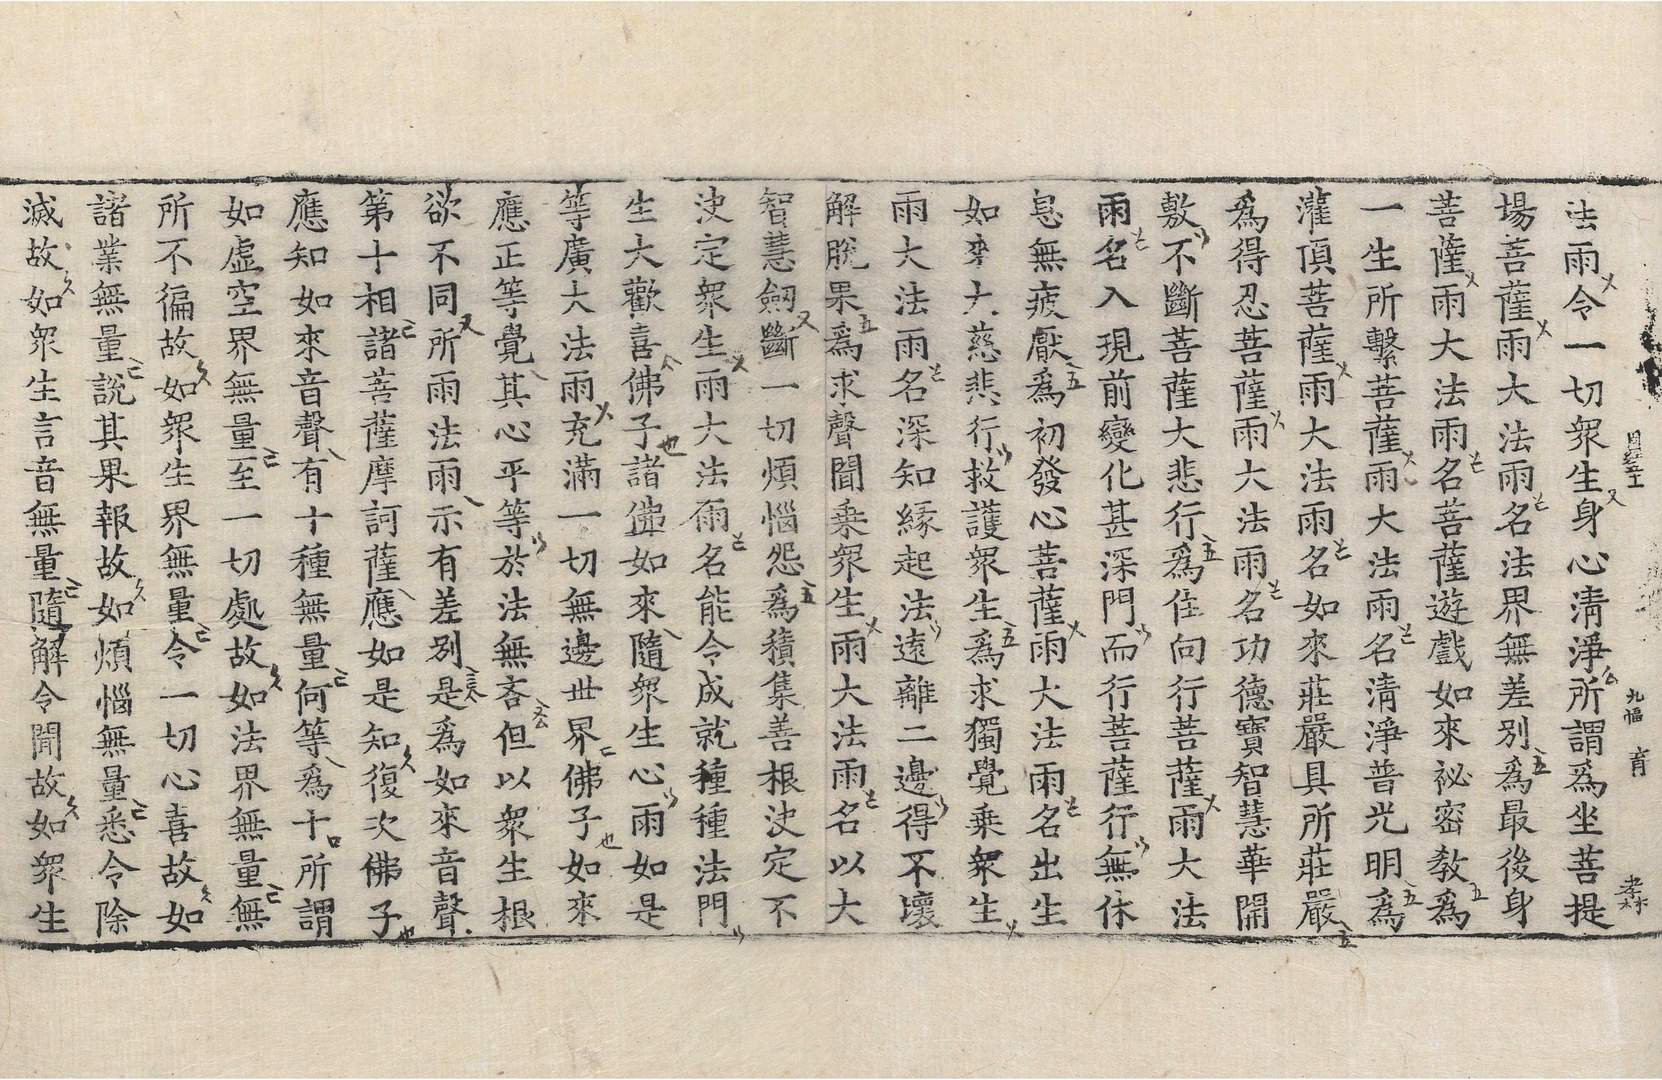 法雨令一切衆生身心淸淨所謂爲坐菩提
場菩薩雨大法雨名法界無差別爲最後身
菩薩雨大法雨名菩薩遊戲如來祕密敎爲
一生所繫菩薩雨大法雨名淸淨普光明爲
灌頂菩薩雨大法雨名如來莊嚴具所莊嚴
爲得忍菩薩雨大法雨名功德寶智慧華開
敷不斷菩薩大悲行爲住向行菩薩雨大法
雨名入現前變化甚深門而行菩薩行無休
息無疲厭爲初發心菩薩雨大法雨名出生
如來大慈悲行救護衆生爲求獨覺乘衆生
雨大法雨名深知緣起法遠離二邊得不壞
解脫果爲求聲聞乘衆生雨大法雨名以大
智慧劒斷一切煩惱怨爲積集善根決定不
決定衆生雨大法雨名能令成就種種法門
生大歡喜佛子諸佛如來隨衆生心雨如是
等廣大法雨充滿一切無邊世界佛子如來
應正等覺其心平等於法無吝但以衆生根
欲不同所雨法雨示有差別是爲如來音聲
第十相諸菩薩摩訶薩應如是知復次佛子
應知如來音聲有十種無量何等爲十所謂
如虛空界無量至一切處故如法界無量無
所不徧故如衆生界無量令一切心喜故如
諸業無量說其果報故如煩惱無量悉令除
滅故如衆生言音無量隨解令聞故如衆生